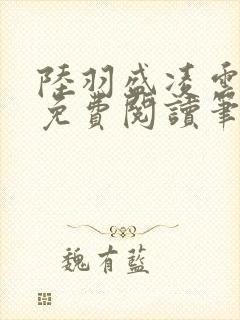 陸羽盛凌雲
免費閱讀筆
魏有藍